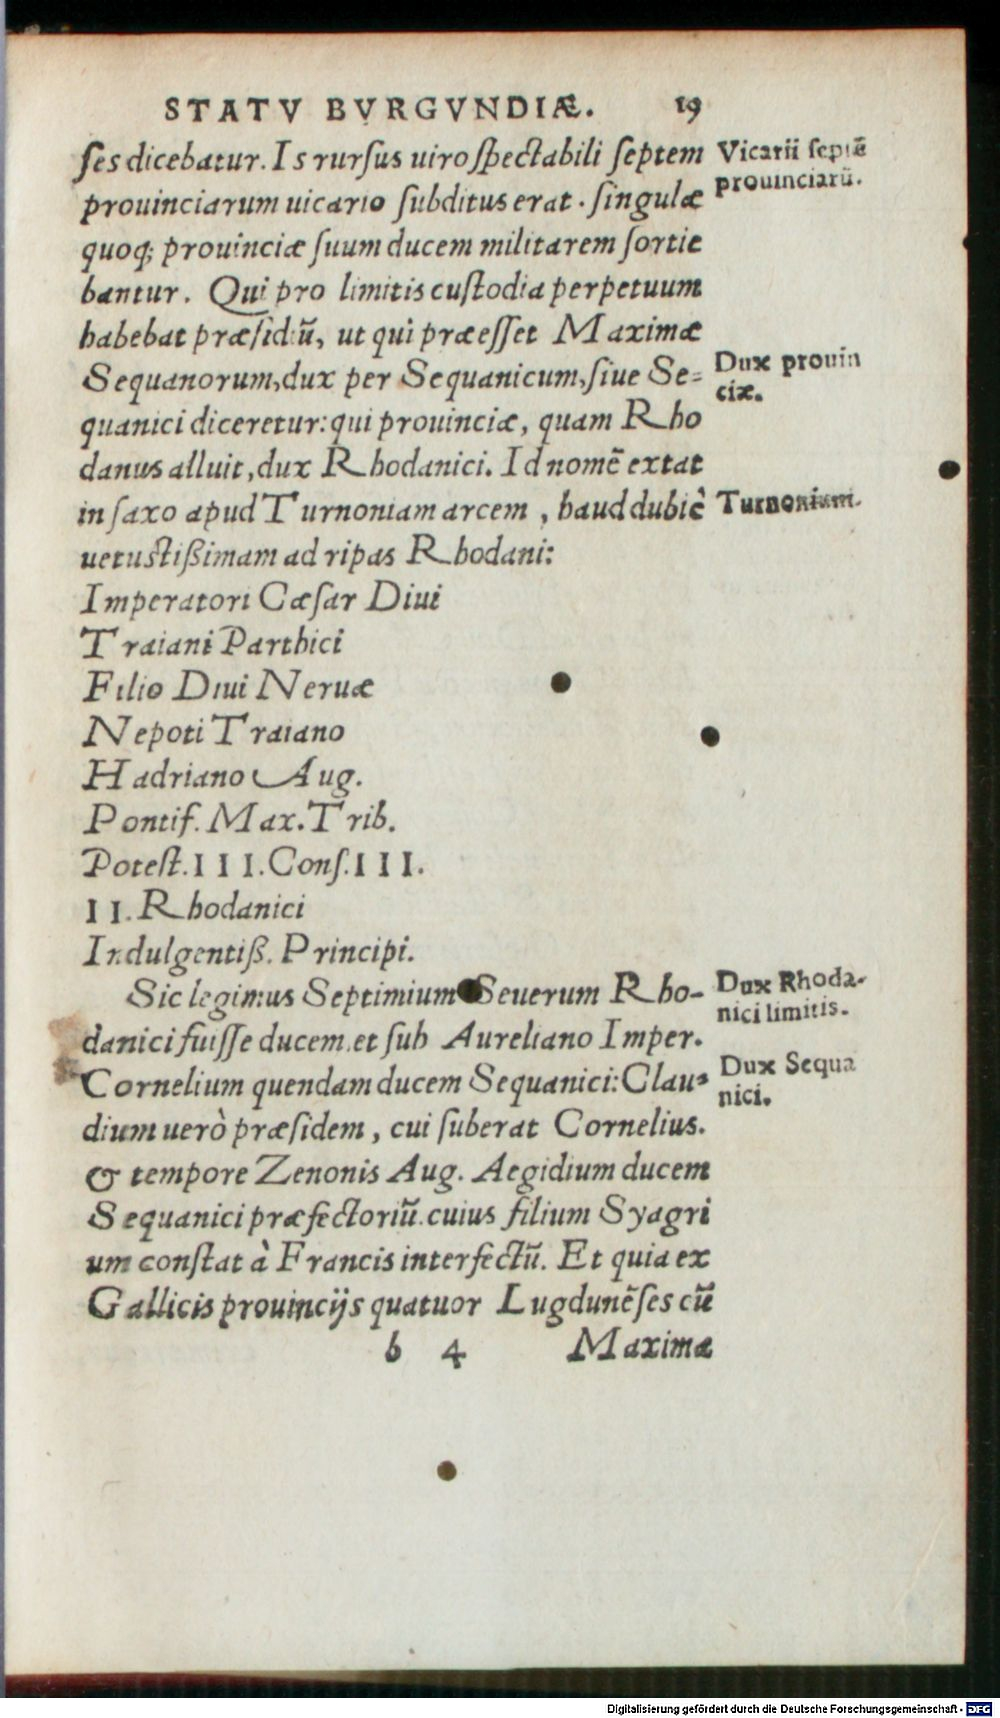 STATV BVRGVNDIÆ. 19
ſes dicebatur. Is rurſus uiro ſpectabili ſeptem
Vicarii ſeptē
prouinciarū.
prouinciarum uicario ſubditus erat. ſingulæ
quoq; prouinciæ ſuum ducem militarem ſortie
bantur. Qui pro limitis cuſtodia perpetuum
habebat præſidiū, ut qui præeſſet Maximæ
Sequanorum, dux per Sequanicum, ſiue Se=
Dux prouin
ciæ.
quanici diceretur: qui prouinciæ, quam Rho
danus alluit, dux Rhodanici. Id nomē extat
in ſaxo apud Turnoniam arcem, haud dubiè
Turnonium.
uetuſtißimam ad ripas Rhodani:
Imperatori Cæſar Diui
Traiani Parthici
Filio Diui Neruæ
Nepoti Traiano
Hadriano Aug.
Pontif. Max. Trib.
Poteſt. III. Conſ. III.
II. Rhodanici
Indulgentiß. Principi.
Sic legimus Septimium Seuerum Rho-
Dux Rhoda-
nici limitis.
danici fuiſſe ducem, et ſub Aureliano Imper.
Cornelium quendam ducem Sequanici: Clau-
Dux Sequa
nici.
dium uerò præſidem, cui ſuberat Cornelius.
& tempore Zenonis Aug. Aegidium ducem
Sequanici præfectoriū. cuius filium Syagri
um conſtat à Francis interfectū. Et quia ex
Gallicis prouincijs quatuor Lugdunēſes cū
b 4 Maximæ
Digitalisierung gefördert durch die Deutsche Forschungsgemeinschaft - DFG